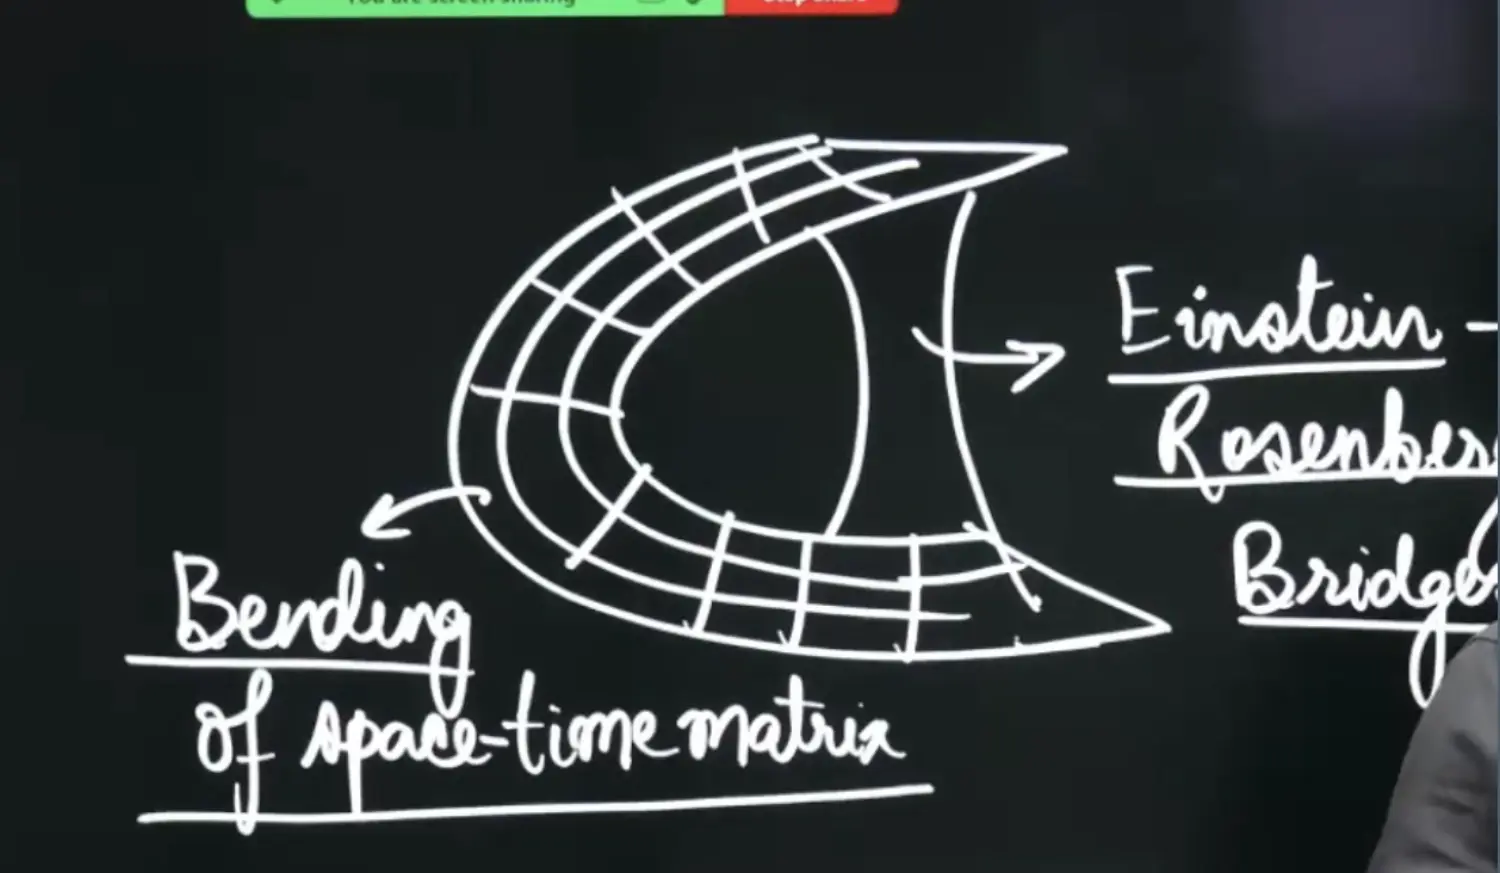 You are screen sharing Stop Share
Einstein -
Rosenberg
Bridge
Bending
of space-time matrix